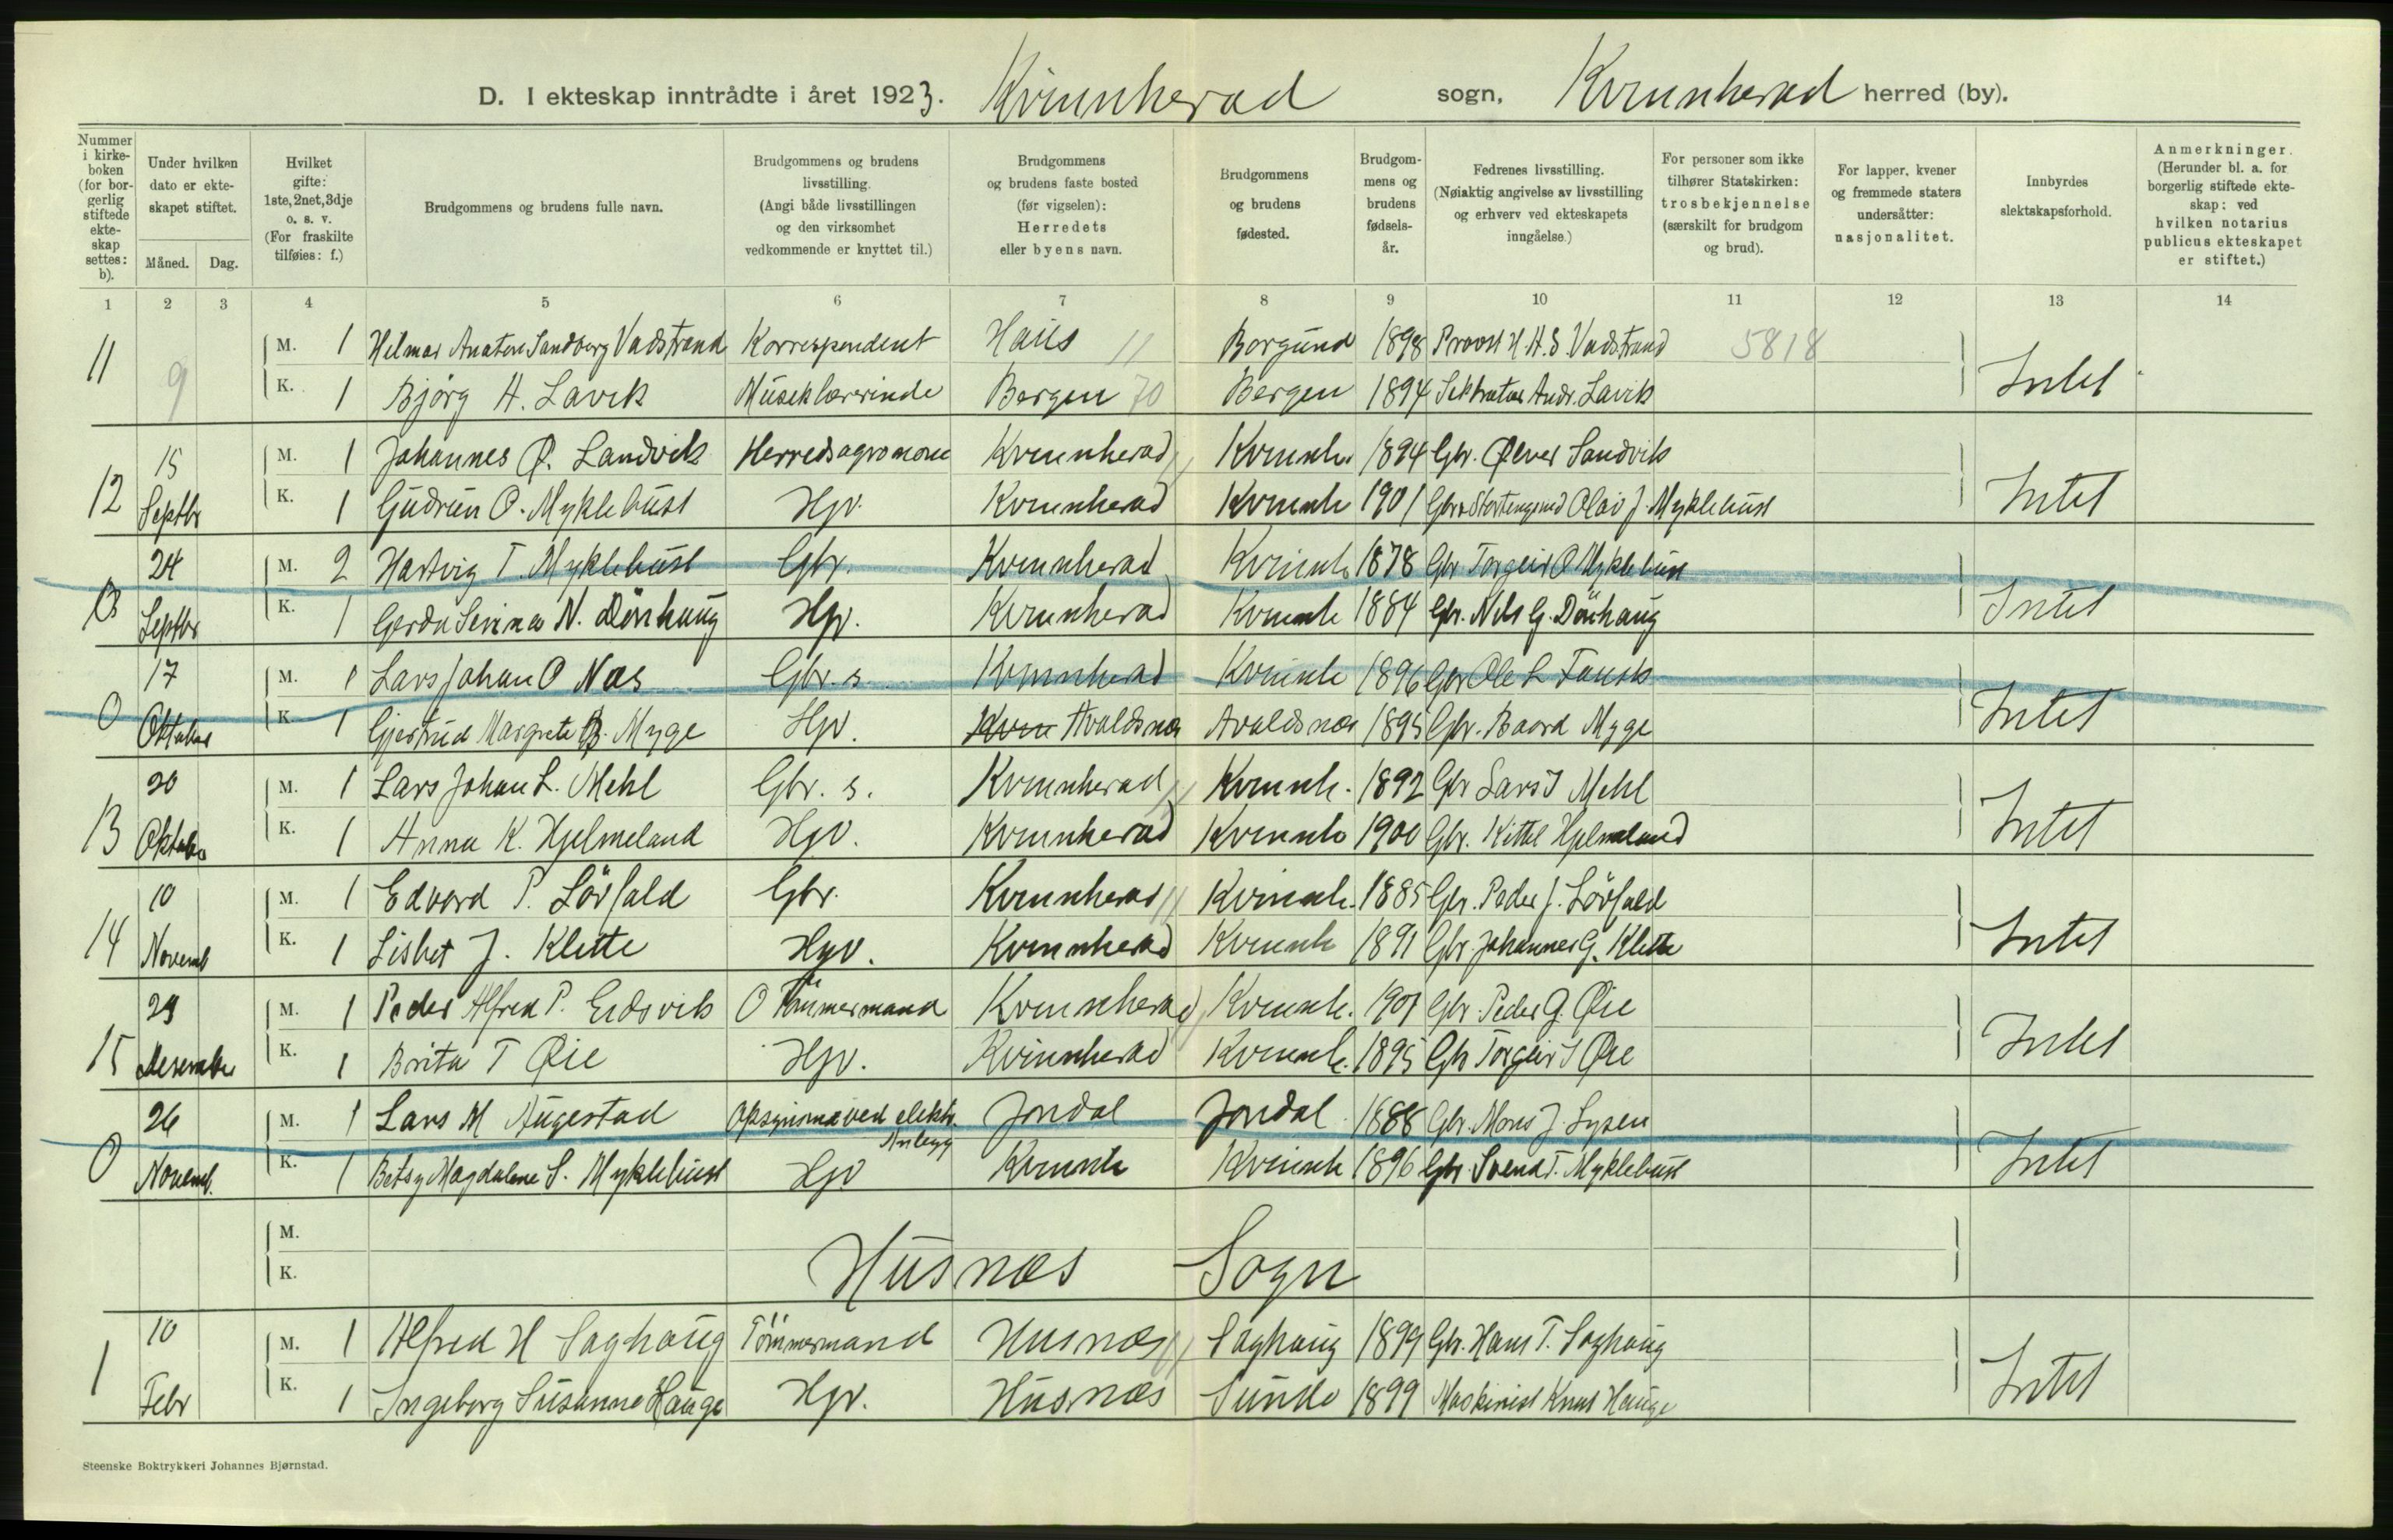 D. I ekteskap inntrådte i året 1923. Kvinnherad sogn, Kvinnherad herred (by).
Nummer i kirkeboken (for borgerlig stiftede ekteskap settes: b).
Under hvilken dato er ekteskapet stiftet.
Måned. Dag.
Hvilket gifte: 1ste, 2net, 3dje o. s. v. (For fraskilte tilføies: f.)
Brudgommens og brudens fulle navn.
Brudgommens og brudens livsstilling. (Angi både livsstillingen og den virksomhet vedkommende er knyttet til.)
Brudgommens og brudens faste bosted (før vigselen): Herredets eller byens navn.
Brudgommens og brudens fødested.
Brudgommens og brudens fødselsår.
Fedrenes livsstilling. (Nøiaktig angivelse av livsstilling og erhverv ved ekteskapets inngåelse.)
For personer som ikke tilhører Statskirken: trosbekjennelse (særskilt for brudgom og brud).
For lapper, kvener og fremmede staters undersåtter: nasjonalitet.
Innbyrdes slektskapsforhold.
Anmerkninger. (Herunder bl. a. for borgerlig stiftede ekteskap: ved hvilken notarius publicus ekteskapet er stiftet.)
1 2 3 4 5 6 7 8 9 10 11 12 13 14
11 9 M. 1 Hilmar Anaton Sandberg Vadstrand Korrespondent Haus 11 Borgund 1898 Provst H. A. S. Vadstrand 5818
K. 1 Bjørg H. Lavik Musiklærerinde Bergen 70 Bergen 1894 Andr. Lavik Intet
12 15 M. 1 Johannes Ø. Sandvik Herredsagronom Kvinnherad Kvinnh. 1894 Gbr. Ølver Sandvik
Septbr K. 1 Gudrun O. Myklebust Hgv. Kvinnherad Kvinnh 1901 Gbr. Stortingsmd Olav J. Myklebust Intet
24 M. 2 Hartvig T. Myklebust Gbr. Kvinnherad Kvinnh 1878 Gbr Torgeir O Myklebust
0 Septbr K. 1 Gerda Serina N. Dönhaug Hgv. Kvinnherad Kvinnh 1884 Gbr. Nils G. Dönhaug Intet
17 M. 1 Lars Johan O Næs Gbr. s. Kvinnherad Kvinnh 1896 Gbr Ole L Fausk
0 Oktober K. 1 Gjertrud Margrete B. Myge Hgv. Kvin Avaldsnæs Avaldsnæs 1895 Gbr. Baard Myge Intet
20 M. 1 Lars Johan L. Mehl Gbr. s. Kvinnherad Kvinnh. 1892 Gbr Lars J Mehl
13 Oktober K. 1 Anna K. Hjelmeland Hgv. Kvinnherad Kvinnh 1900 Gbr. Kittel Hjelmeland Intet
10 M. 1 Edvard P. Lörfald Gbr. Kvinnherad Kvinnh. 1885 Gbr. Peder J. Lörfald
14 Novemb K. 1 Lisbet J. Klette Hgv. Kvinnherad Kvinnh 1891 Gbr. Johannes G. Klette Intet
29 M. 1 Peder Alfred P. Eidsvik Tömmermand Kvinnherad Kvinnh. 1901 Gbr. Peder G. Øie
15 Desember K. 1 Brita T Øie Hgv. Kvinnherad Kvinnh. 1895 Gbr Torgeir J Øie Intet
26 M. 1 Lars M Augestad Opsynsmd ved elektr. Anlegg Jondal Jondal 1888 Gbr. Mons J. Lysen
0 Novemb. K. 1 Betsy Magdalene S. Myklebust Hgv Kvinnh Kvinnh 1896 Gbr. Svend T. Myklebust Intet
M.
K. Husnæs Sogn
10 M. 1 Alfred H Saghaug Tömmermand Husnæs Saghaug 1899 Gbr. Hans T. Saghaug
1 Febr K. 1 Ingeborg Susanne Hauge Hgv. Husnæs Sunde 1899 Maskinist Knut Hauge Intet
Steenske Boktrykkeri Johannes Bjørnstad.